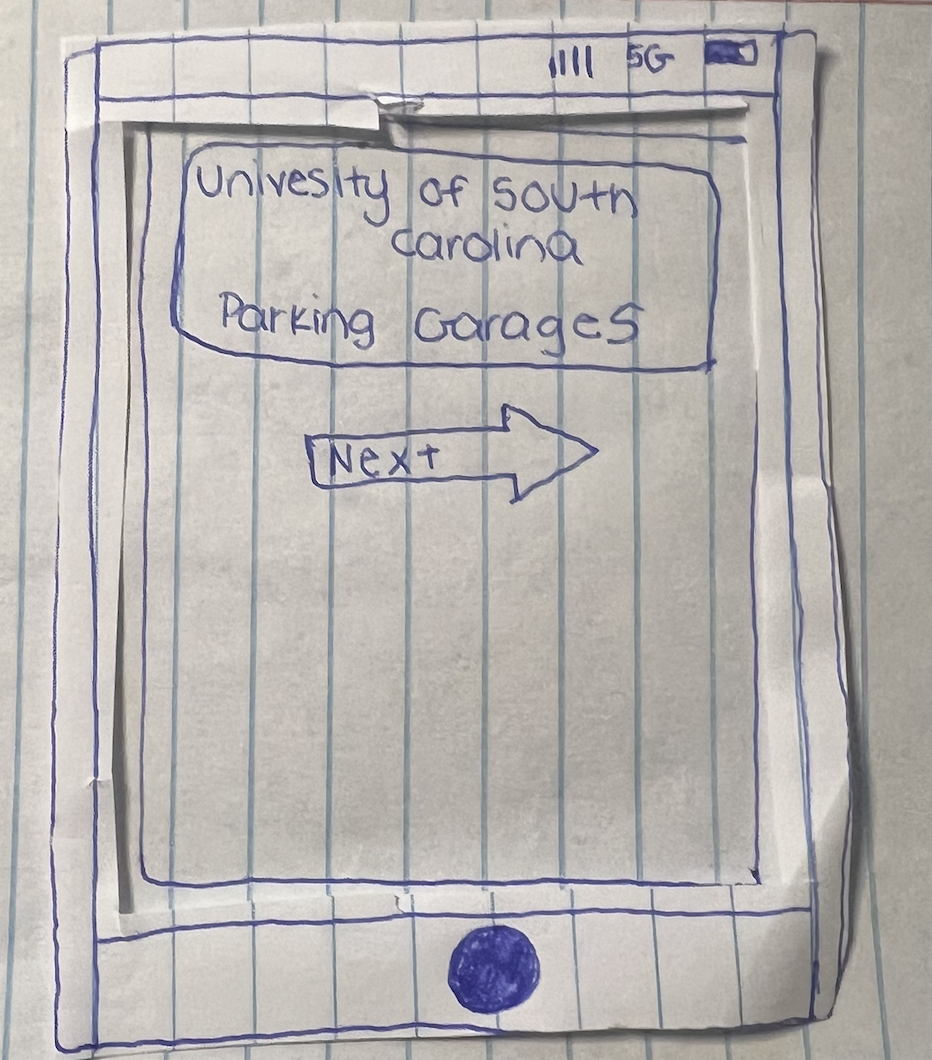 5G
Univesity of South
Carolina
Parking Garages
Next